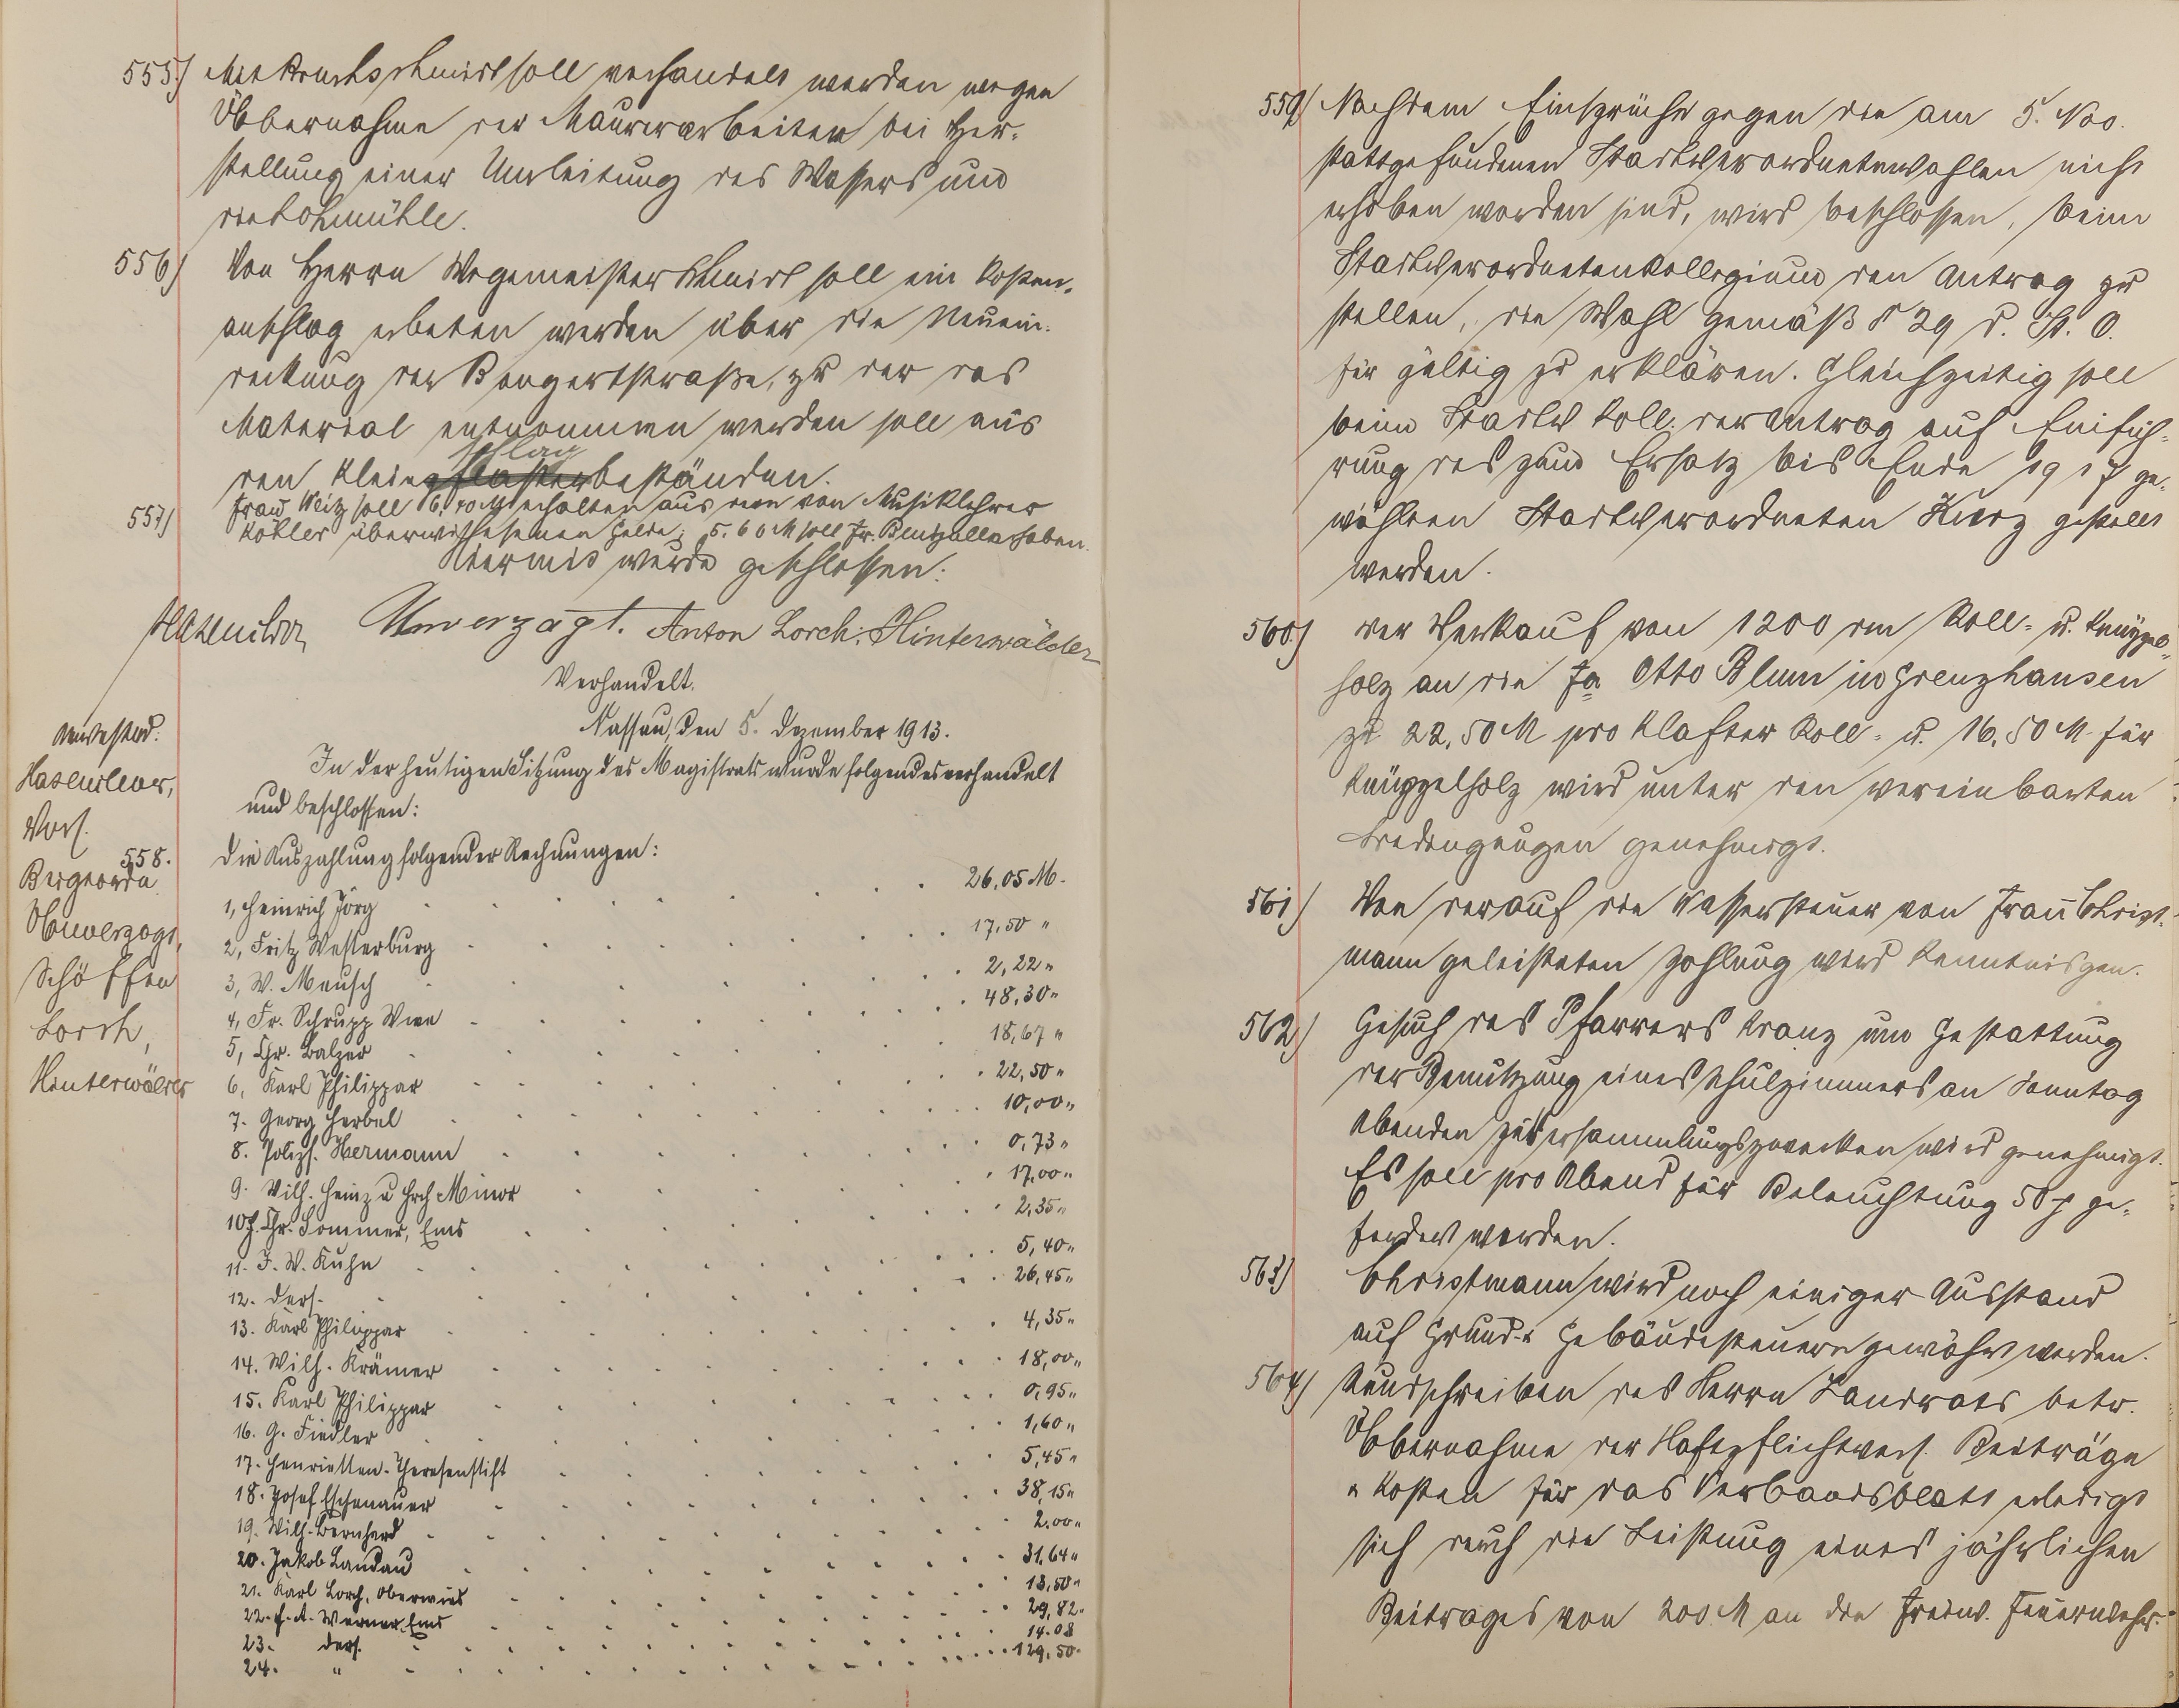 555) Mit Kruchschmidt soll verhandelt werden wegen
Übernahme der Maurerarbeiten bei Her-
stellung einer Umleitung des Wassers um
die Lohmühle.
556) Von Herrn Wegemeister Schmidt soll ein Kosten-
anschlag erbeten werden über die Neuein-
deckung der Bongertstraße, zu der das
Material entnommen werden soll aus
schlag
den Kleinpflasterbeständen.
557) Frau Weitz soll 6,50 M erhalten aus dem von Musiklehrer
Köbler überwiesenen Gelde; 5.60 M soll Fr. Bentz alle haben.
Hiermit wurde geschlossen:
Hasenclever Unverzagt. Anton Lorch. Hinterwälder
Verhandelt.
Nassau, den 5. Dezember 1913.
Anwesend:
Hasenclever,
Vors.
Beigeord.
Unverzagt,
Schöffen
Lorch,
Hinterwälder
In der heutigen Sitzung des Magistrats wurde folgendes verhandelt
und beschlossen:
558. Die Auszahlung folgender Rechnungen:
1, Heinrich Jörg 26,05 M.
2, Fritz Westerburg 17,50 "
3, W. Mensch 2,22 "
4, Fr. Schrupp Wwe 48,30 "
5, Chr. Balzer 18,67 "
6, Karl Philippar 22,50 "
7. Georg Herbel 10,00 "
8. Polizs. Hermann 0,73 "
9. Wilh. Heinz u Hrch Minor 17,00 "
10. Chr. Sommer, Ems 2,35 "
11. J. W. Kuhn 5,40 "
12. Ders. 26,45 "
13. Karl Philippar 4,35 "
14. Wilh. Krämer 18,00 "
15. Karl Philippar 0,95 "
16. G. Fiedler 1,60 "
17. Henrietten-Theresenstift 5,45 "
18. Josef Eschenauer 38,15 "
19. Wilh. Bernhard 2.00 "
20. Jakob Landau 31,64 "
21. Karl Lorch, Oberwies 18,50 "
22. H. A. Werner, Ems 29,82 "
23. Ders. 14.08
24. " 129,50 "
559) Nachdem Einsprüche gegen die am 5. Nov.
stattgefundenen Stadtverordnetenwahlen nicht
erhoben worden sind, wird beschlossen, beim
Stadtverordnetenkollegium den Antrag zu
stellen, die Wahl gemäß § 29 d. St. O.
für gültig zu erklären. Gleichzeitig soll
beim Stadtv Koll. der Antrag auf Einfüh-
rung des zum Ersatz bis Ende 1917 ge-
wählten Stadtverordneten Kurz gestellt
werden.
560) Der Verkauf von 1200 rm Roll- u. Knüppel-
holz an die Fa Otto Blum in Grenzhausen
zu 22,50 M pro Klafter Roll- u. 16,50 M für
Knüppelholz wird unter den vereinbarten
Bedingungen genehmigt.
561) Von der auf die Wassersteuer von Frau Christ-
mann geleisteten Zahlung wird Kenntnis gen.
562) Gesuch des Pfarrers Kranz um Gestattung
der Benutzung eines Schulzimmers an Sonntag
Abenden zu Versammlungszwecken wird genehmigt.
Es soll pro Abend für Beleuchtung 50 ₰ ge-
fordert werden.
563) Christmann wird noch einiger Ausstand
auf Grund- u Gebäudesteuern gewährt werden.
564) Rundschreiben des Herrn Landrats betr.
Übernahme der Haftpflichtvers. Beiträge
u Kosten für das Verbandsblatt erledigt
sich durch die Leistung eines jährlichen
Beitrages von 200 M an die Freiw. Feuerwehr.